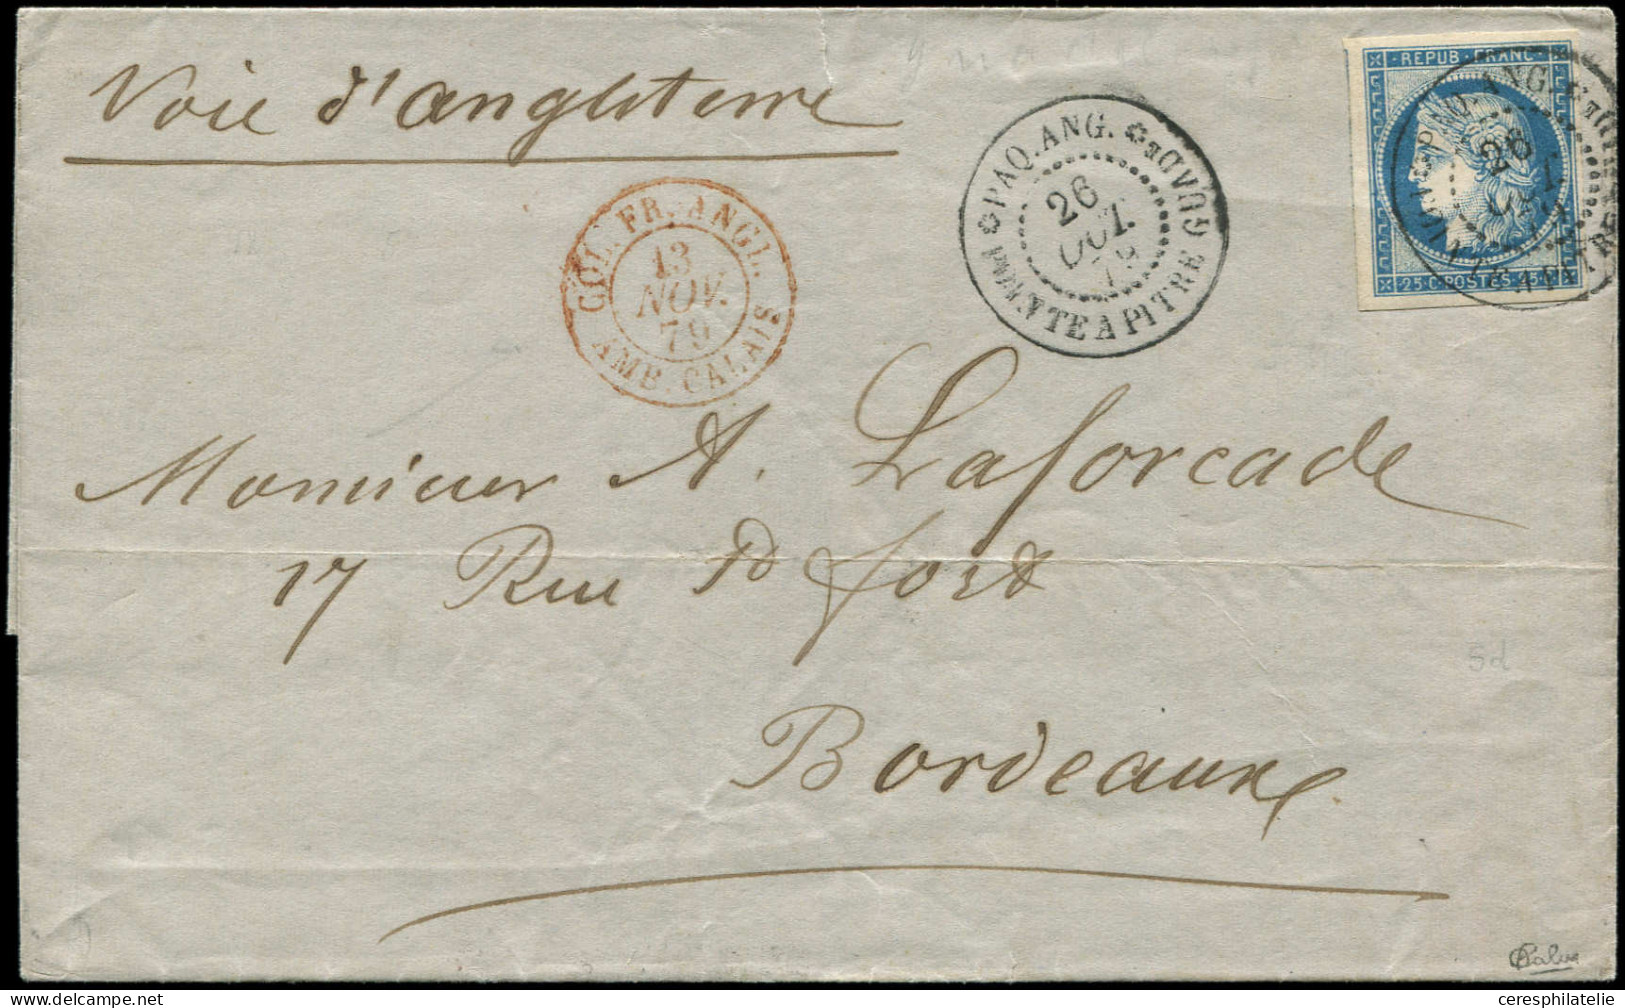 Voie d'angleterre
REPUB. FRANC.
25 C. POSTES 25
PAQ. ANG.
26
OCT.
79
GUADE
POINTE A PITRE
COL. FR. ANGL.
13
NOV.
79
AMB. CALAIS
PAQ. ANG.
26
OCT.
79
Monsieur A. Laforcade
17 Rue Pd fort
Bordeaux
5d
Calves
ceresphilatelie